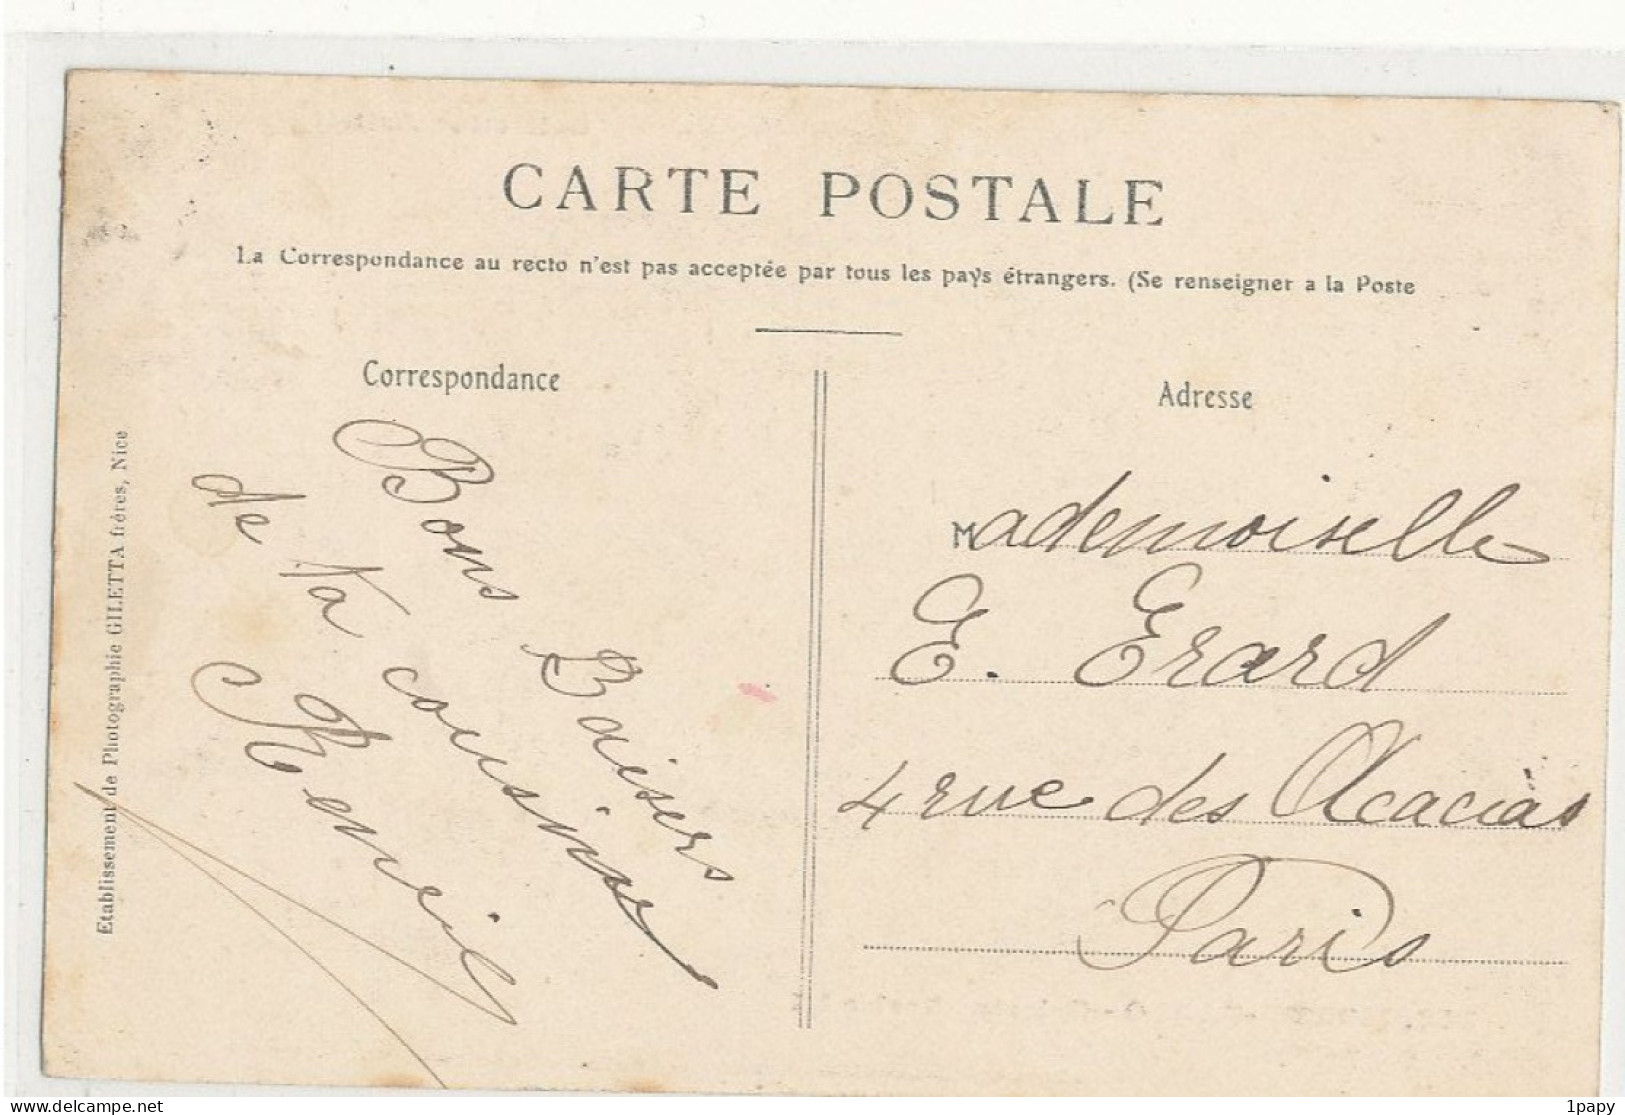 CARTE POSTALE
La Correspondance au recto n'est pas acceptée par tous les pays étrangers. (Se renseigner a la Poste
Correspondance
Bons Baisers
de ta cousine
Etablissement de Photographie GILETTA frères, Nice
Adresse
Mademoiselle
E. Erard
4 rue des Acacias
Paris
delcampe.net
1papy